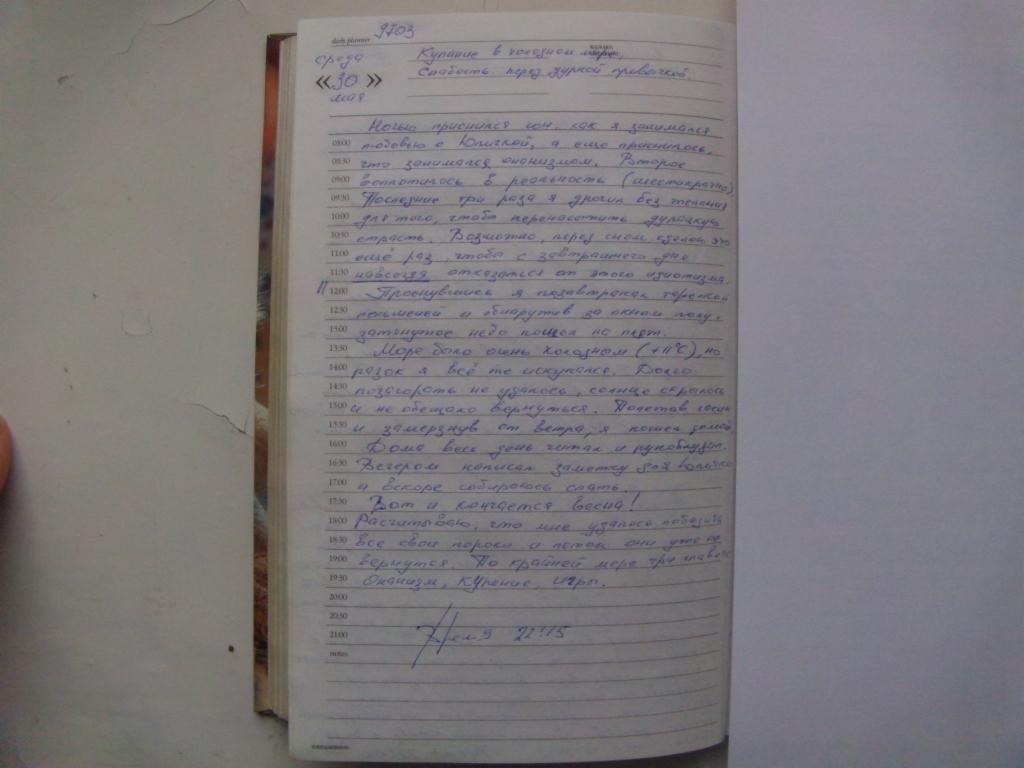 daily planner 9703
среда
Купание в холодном море,
«30»
Слабость перед дурной привычкой.
мая
Ночью приснился сон, как я занимался
08:00 любовью с Юличкой, а ещё приснилось,
08:30 что занимался онанизмом. Второе
09:00 воплотилось в реальность (шестикратно).
09:30 Последние три раза я дрочил без желания
10:00 для того, чтобы перенасытить дурацкую
10:30 страсть. Возможно, перед сном сделаю это
11:00 ещё раз, чтобы с завтрашнего дня
11:30 навсегда отказаться от этого идиотизма.
12:00 Проснувшись я позавтракал тарелкой
12:30 пельменей и обнаружив за окном полу-
13:00 затянутое небо пошел на пляж.
13:30 Море было очень холодным (+11°C), но
14:00 разок я всё же искупался. Долго
14:30 позагорать не удалось, солнце скрылось
15:00 и не обещало вернуться. Полежав
15:30 и замерзнув от ветра, я пошел домой.
16:00 Дома весь день читал и рукоблудил.
16:30 Вечером написал заметку для
17:00 и вскоре собираюсь спать.
17:30 Вот и кончается весна!
18:00 Расчитываю, что мне удалось победить
18:30 все свои пороки и летом они уже не
19:00 вернутся. По крайней мере три главные
19:30 Онанизм, курение, игры.
20:00
20:30
21:00 Время 22:15
notes